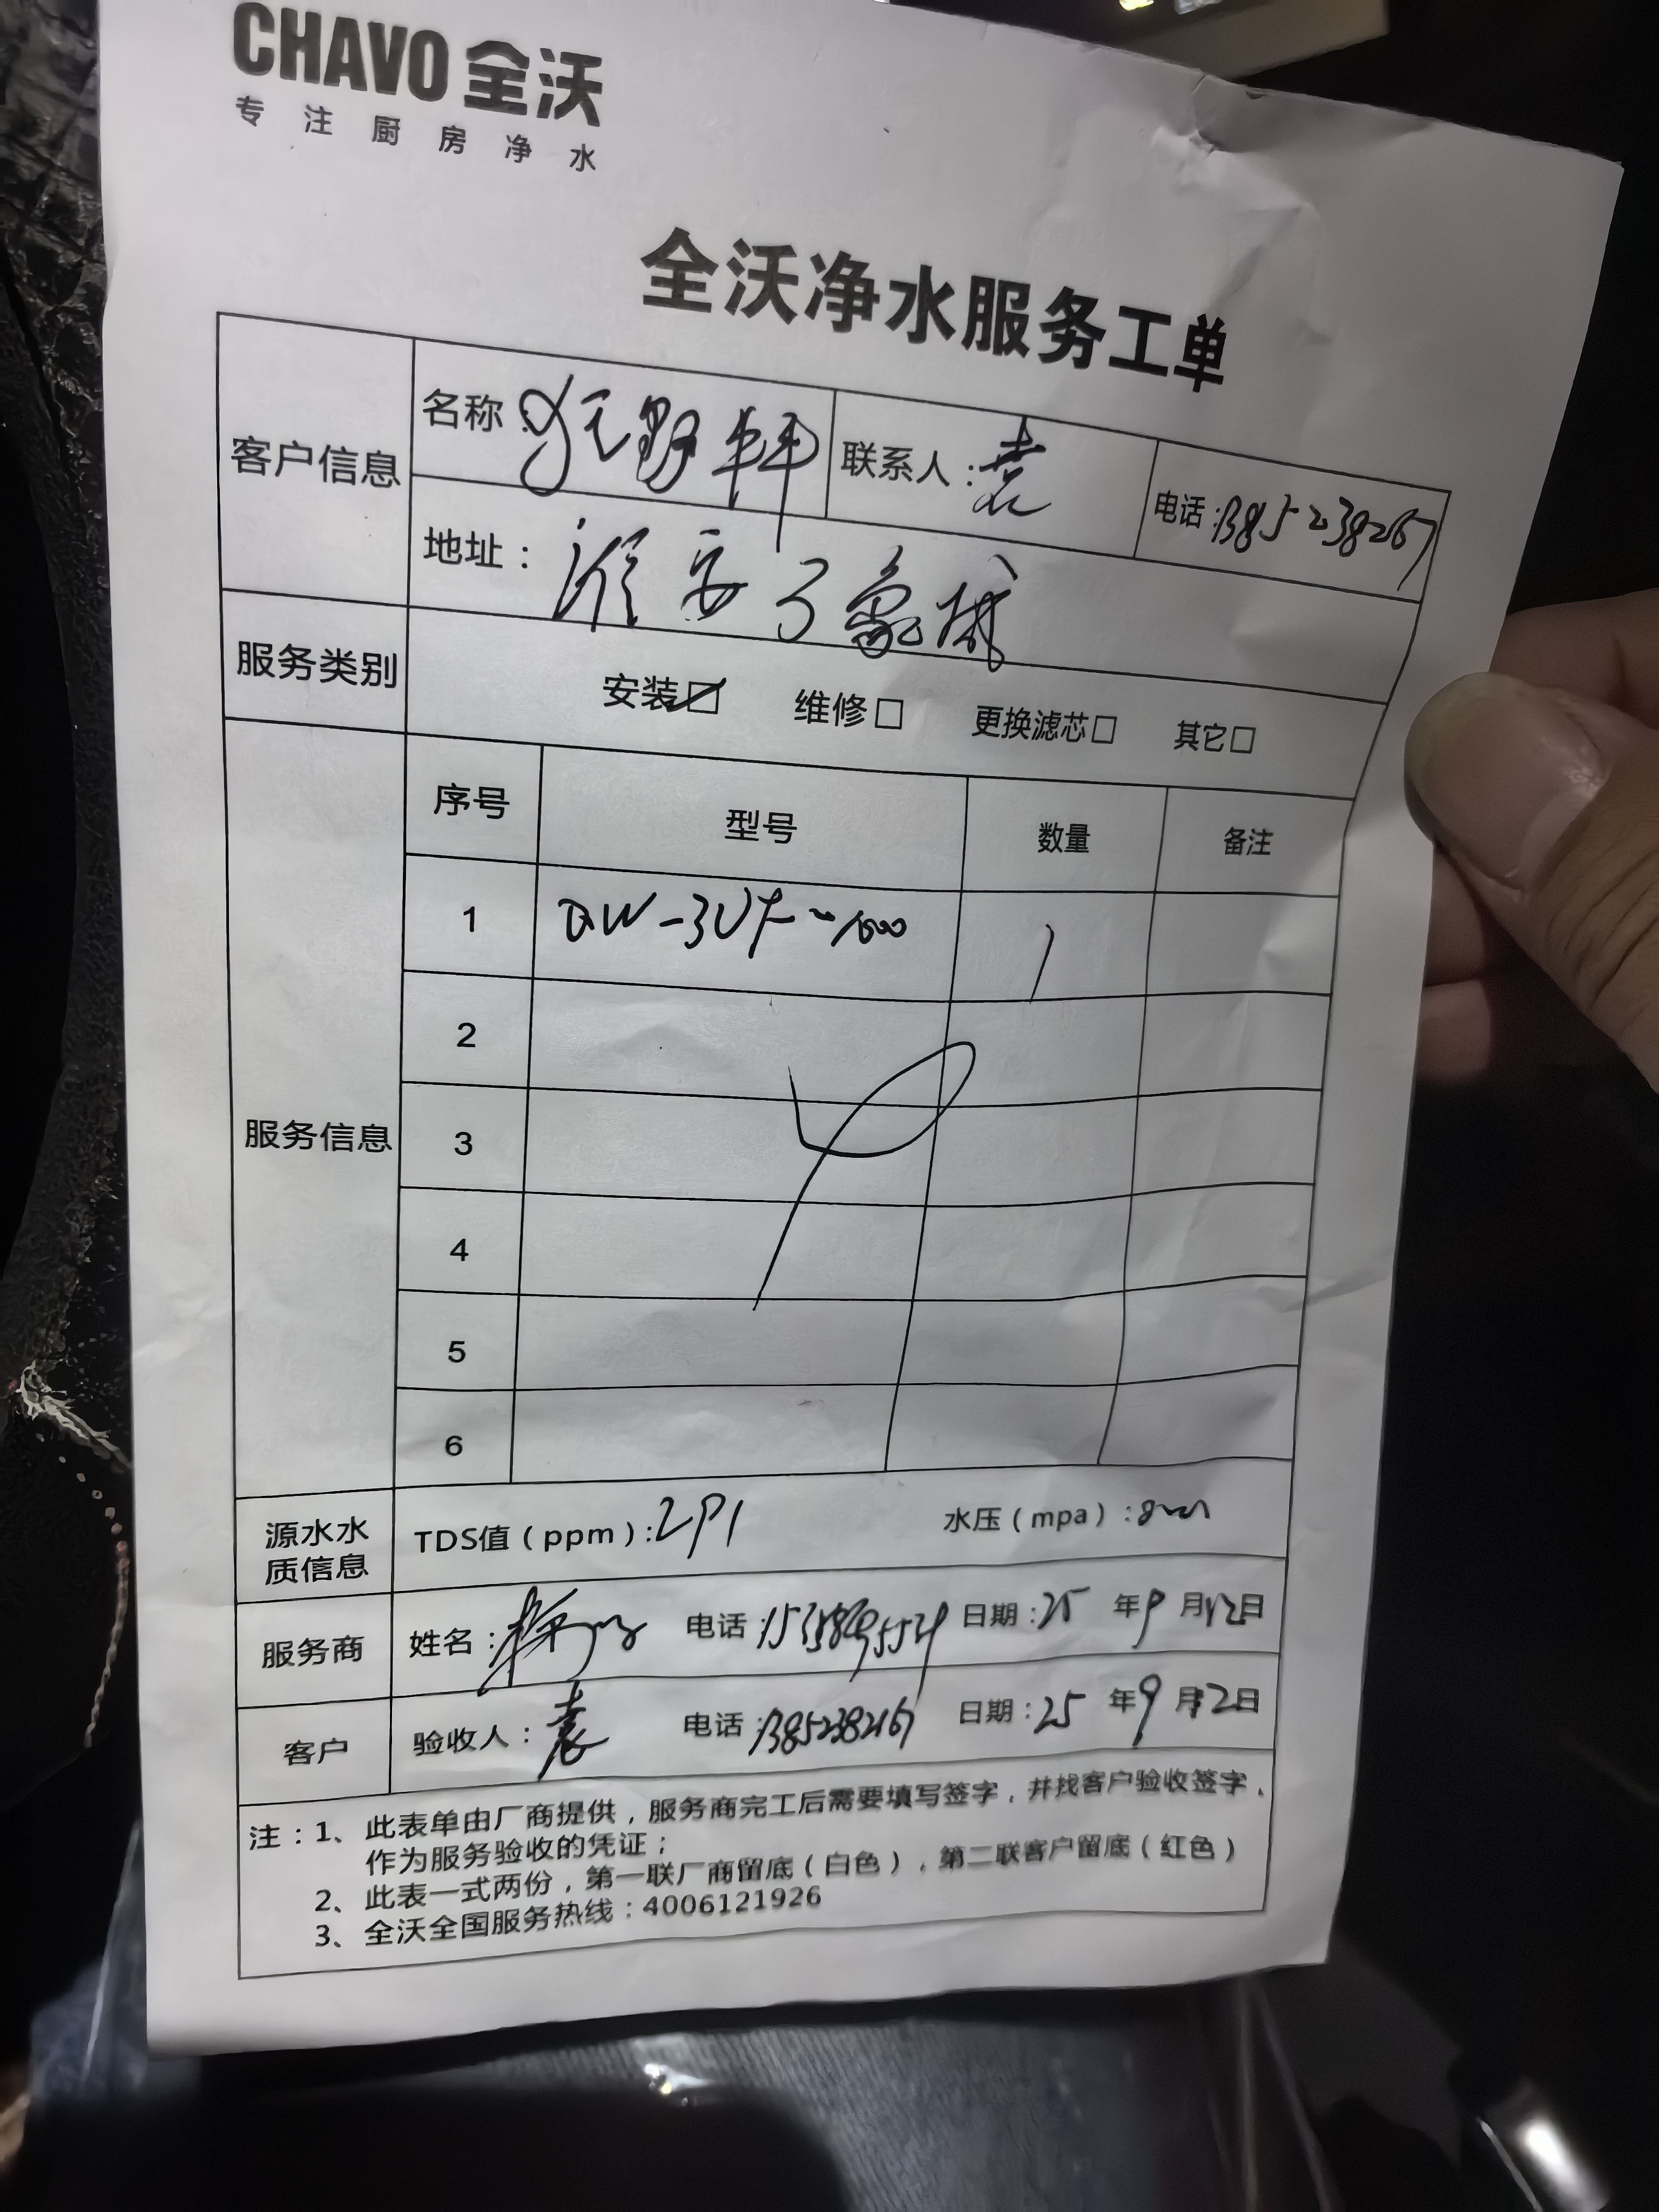 CHAVO 全沃
专注厨房净水
全沃净水服务工单
客户信息
名称: 野
联系人:袁
电话:
地址: 淮安万象城
服务类别
安装☑ 维修□ 更换滤芯□ 其它□
服务信息
序号 型号 数量 备注
1 QW-3UF-1600 1
2
3
4
5
6
源水水质信息
TDS值(ppm): 水压(mpa):
服务商
姓名: 电话: 日期:25年9月12日
客户
验收人:袁 电话: 日期:25年9月12日
注:1、此表单由厂商提供,服务商完工后需要填写签字,并找客户验收签字,
作为服务验收的凭证;
2、此表一式两份,第一联厂商留底(白色),第二联客户留底(红色)
3、全沃全国服务热线:4006121926